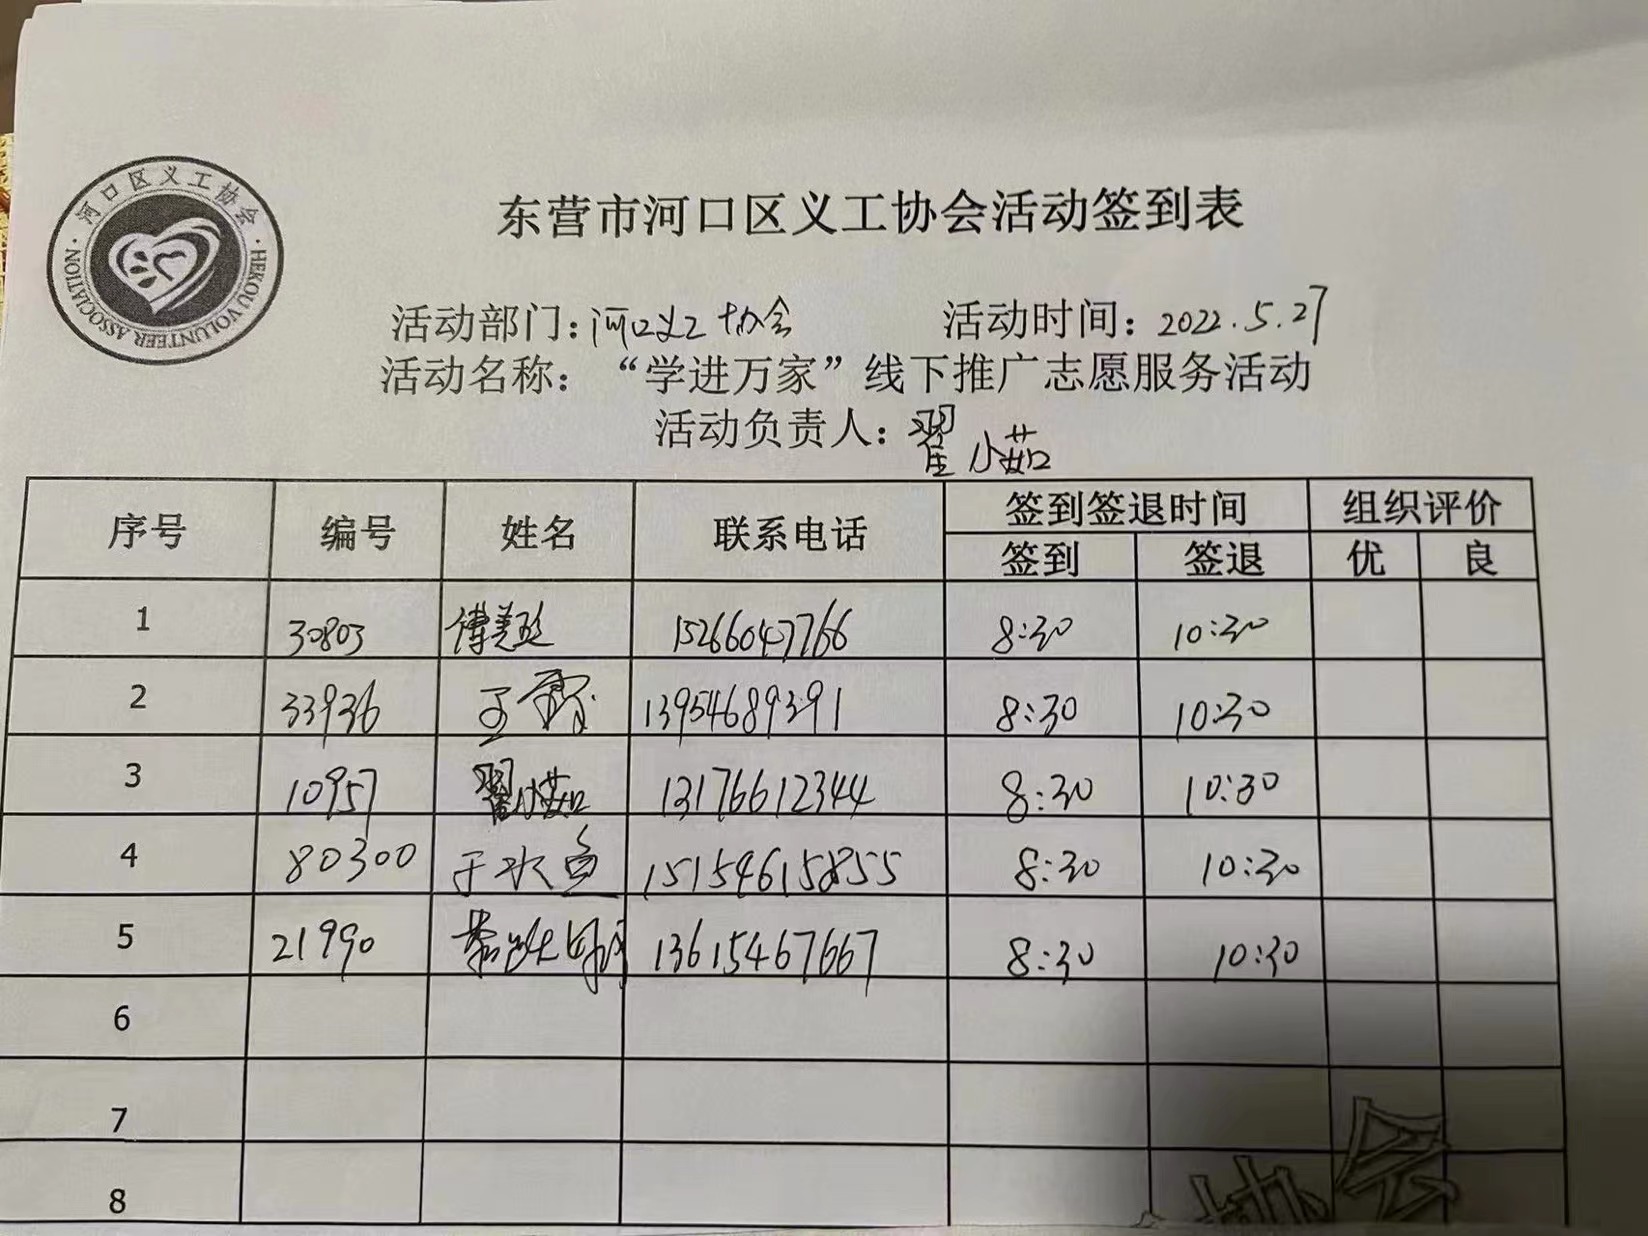 河口区义工协会
HEKOU VOLUNTEER ASSOCIATION
东营市河口区义工协会活动签到表
活动部门：河口义工协会 活动时间：2022.5.27
活动名称：“学进万家”线下推广志愿服务活动
活动负责人：翟小茹
序号 编号 姓名 联系电话 签到签退时间 组织评价
签到 签退 优 良
1 30803 傅美 15266047766 8:30 10:30
2 33936 王霞 13954689391 8:30 10:30
3 10957 翟小茹 13176612344 8:30 10:30
4 80300 于 15154615855 8:30 10:30
5 21990 13615467667 8:30 10:30
6
7
8
协会